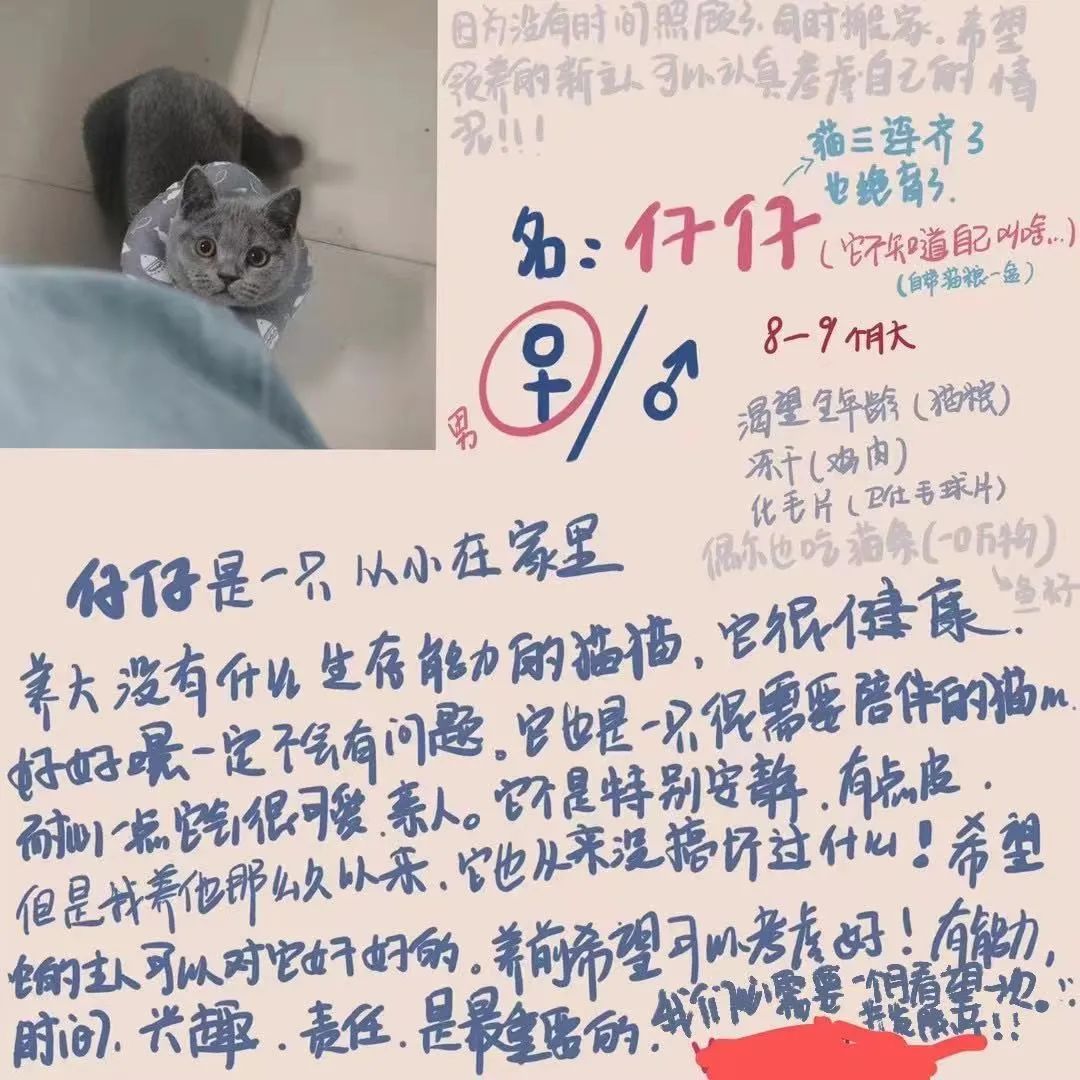 因为没有时间照顾了同时搬家.希望
领养的新主人可以认真考虑自己的情
况!!!
猫三连齐了
也绝育了.
名:仔仔
(它不知道自己叫啥...)
(自带猫粮一盒)
♀/♂
男
8-9个月大
渴望全年龄(猫粮)
冻干(鸡肉)
化毛片(卫仕毛球片)
偶尔也吃猫条(一口)
仔仔是一只从小在家里
养大没有什么生存能力的猫猫,它很健康.
好好喂一定不会有问题。它也是一只很需要陪伴的猫
耐心一点它会很可爱.亲人。它不是特别安静.有点皮.
但是我养他那么久以来.它也从来没搞坏过什么!希望
它的主人可以对它好好的.养前希望可以考虑好!有能力,
时间.兴趣.责任.是最重要的.我们需要一个月看望一次。